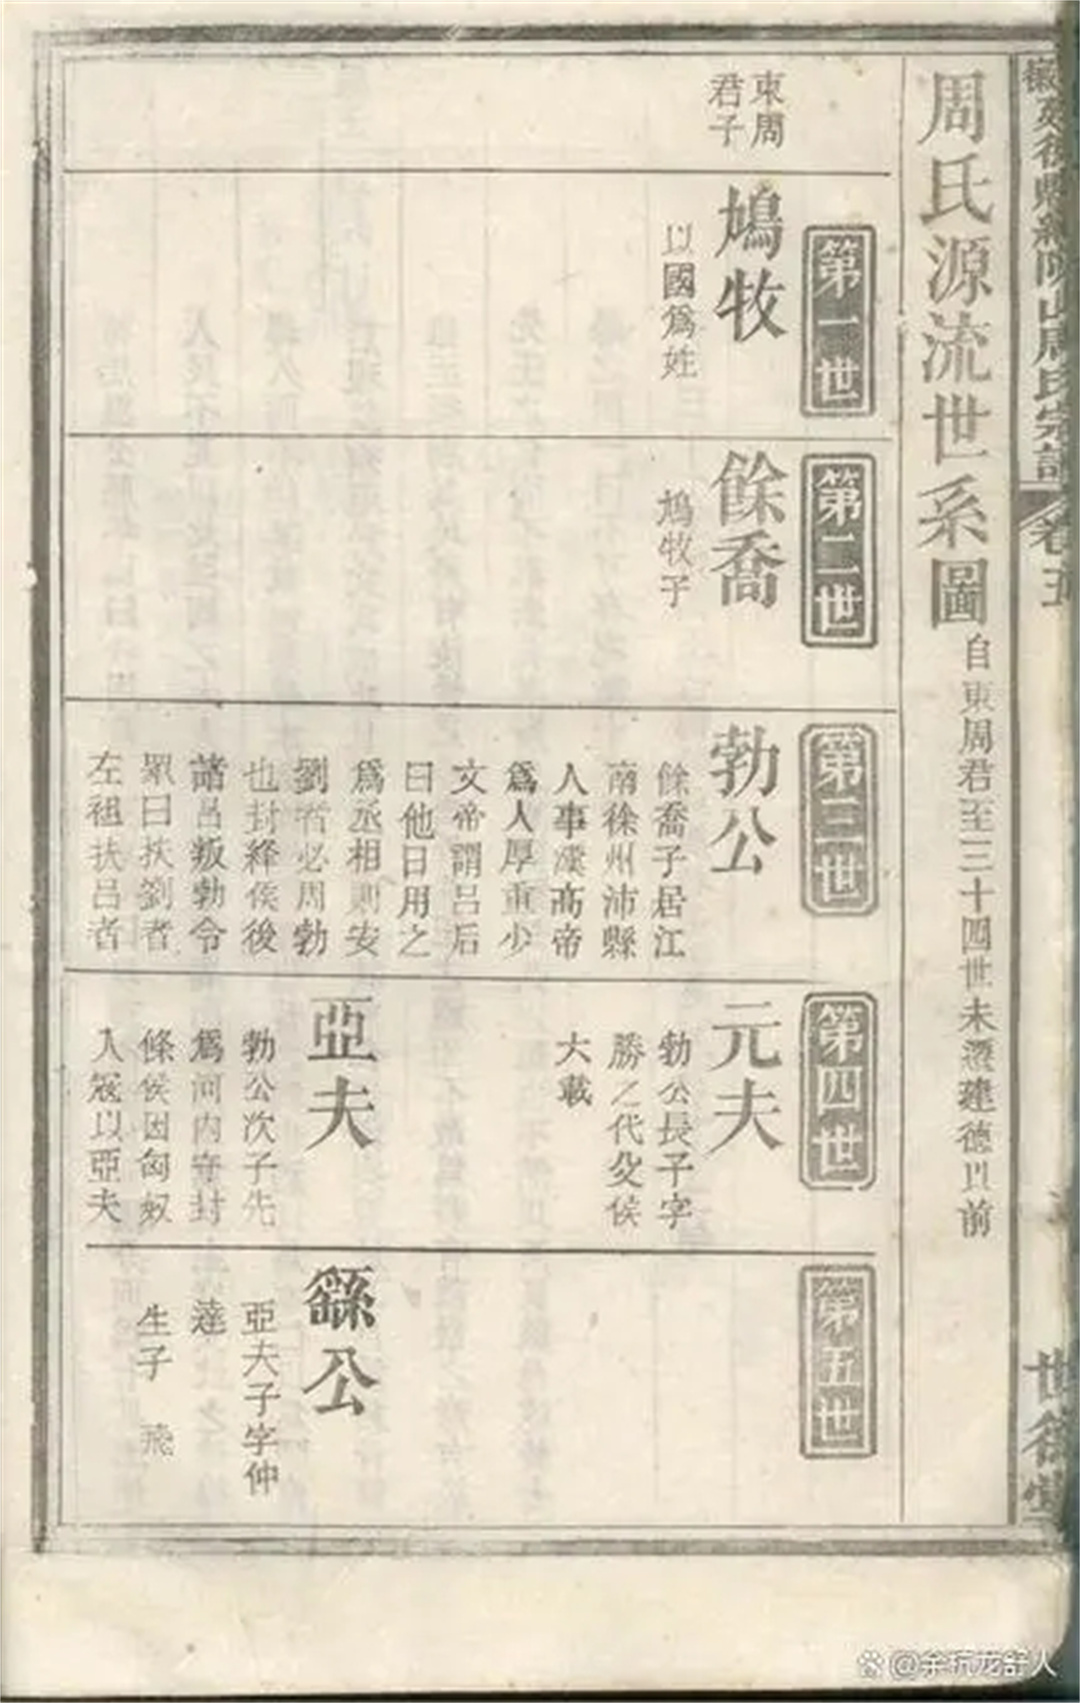 周氏宗譜
卷五
世德堂
周氏源流世系圖
自東周君至三十四世未遷建德以前
東周
君子
第一世
鳩牧
以國爲姓
第二世
餘喬
鳩牧子
第三世
勃公
餘喬子居江
南徐州沛縣
人事漢高帝
爲人厚重少
文帝謂呂后
曰他日用之
爲丞相則安
劉者必周勃
也封絳侯後
諸呂叛勃令
眾曰扶劉者
左袒扶呂者
第四世
元夫
勃公長子字
勝之代父侯
大載
亞夫
勃公次子先
爲河內守封
條侯因匈奴
入寇以亞夫
第五世
繇公
亞夫子字仲
達
生子 燕
@余杭龙舒人